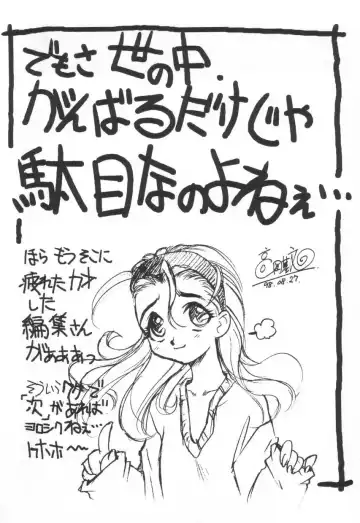 でもさ 世の中.
がんばるだけじゃ
駄目なのよねぇ…
ほら そこに
疲れたカオ
した
編集さん
がぁぁぁっ
「次」があれば
ヨロシクねぇ…
トホホ〜
'98.08.27.